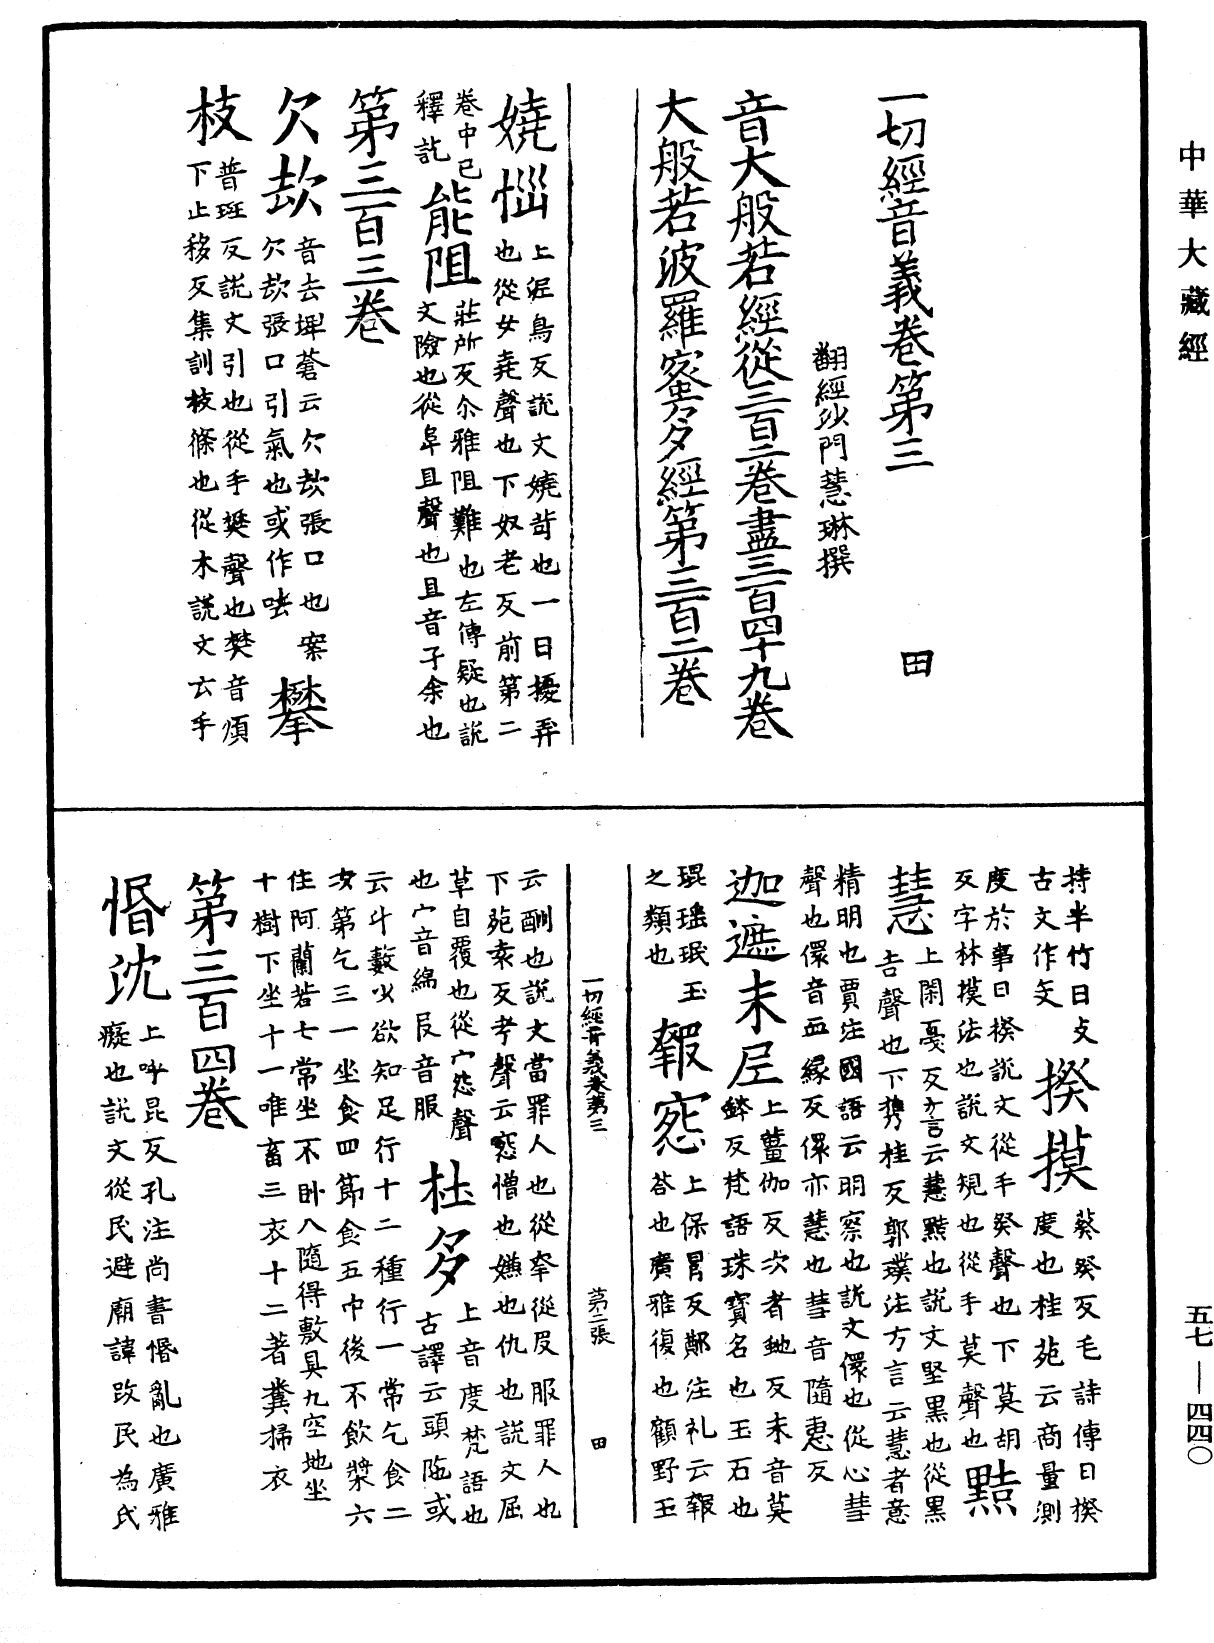 中華大藏經
一切經音義卷第三　田
翻經沙門慧琳撰
音大般若經從三百二卷盡三百四十九卷
大般若波羅蜜多經第三百二卷
嬈惱　上泥鳥反說文嬈苛也一曰擾弄
也從女堯聲也下奴老反前第二
卷中已
釋訖　能阻　莊所反尒雅阻難也左傳疑也說
文險也從阜且聲也且音子余也
第三百三卷
欠㰦　音去埤蒼云欠㰦張口也案
欠㰦張口引氣也或作呿　攀
枝　普班反說文引也從手樊聲也樊音煩
下止移反集訓枝條也從木說文云手
持半竹曰攴
古文作𠦜　揆摸　葵癸反毛詩傳曰揆
度也桂苑云商量測
度於事曰揆說文從手癸聲也下莫胡
反字林摸法也說文規也從手莫聲也　黠
慧　上閑戞反方言云慧黠也說文堅黑也從黑
吉聲也下㩗桂反郭璞注方言云慧者意
精明也賈注國語云明察也說文儇也從心彗
聲也儇音血緣反儇亦慧也彗音隨惠反
迦遮末尼　上薑伽反次者虵反末音莫
鉢反梵語珠寶名也玉石也
琨瑤珉玉
之類也　報㤪　上保冒反鄭注礼云報
荅也廣雅復也顧野王
云酬也說文當罪人也從㚔從𠬝服罪人也
下苑袁反考聲云㤪憎也嫌也仇也說文屈
草自覆也從宀怨聲
也宀音綿𠬝音服　杜多　上音度梵語也
古譯云頭陁或
云斗藪少欲知足行十二種行一常乞食二
次第乞三一坐食四節食五中後不飲漿六
住阿蘭若七常坐不卧八隨得敷具九空地坐
十樹下坐十一唯畜三衣十二著糞掃衣
第三百四卷
惛沈　上呼昆反孔注尚書惛亂也廣雅
癡也說文從民避廟諱改民為氏
一切經音義卷第三　第二張　田
五七—四四〇